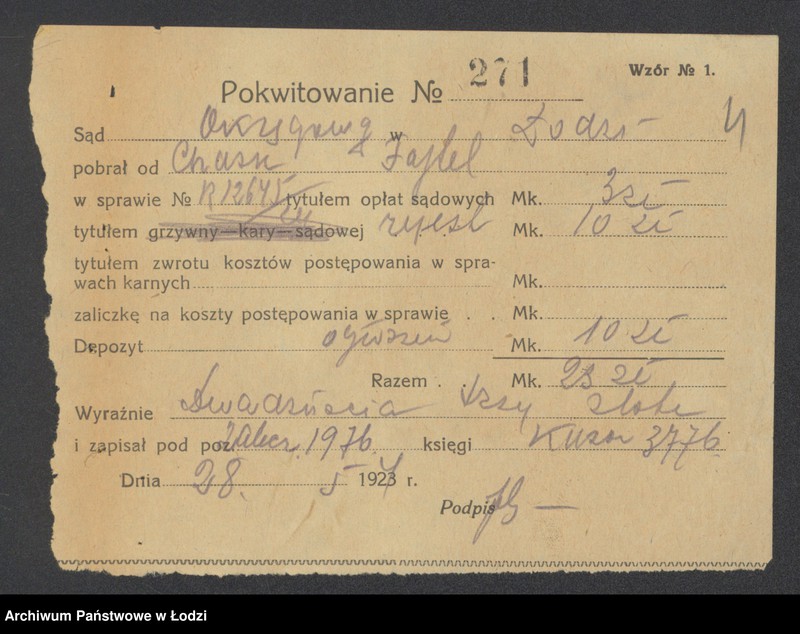 Wzór № 1.
Pokwitowanie № 271
Sąd Okręgowy w Łodzi
4
pobrał od Chasn Fajtel
w sprawie № R 12645 tytułem opłat sądowych Mk. 3 zł
tytułem grzywny—kary—sądowej rejest Mk. 10 zł
tytułem zwrotu kosztów postępowania w spra-
wach karnych Mk.
zaliczkę na koszty postępowania w sprawie . . Mk.
Depozyt ogłoszeń Mk. 10 zł
Razem . . Mk. 23 zł
Wyraźnie Dwadzieścia trzy złote
i zapisał pod poz. 1976 księgi 3776
Dnia 28. 5 1927 r.
Podpis
Archiwum Państwowe w Łodzi